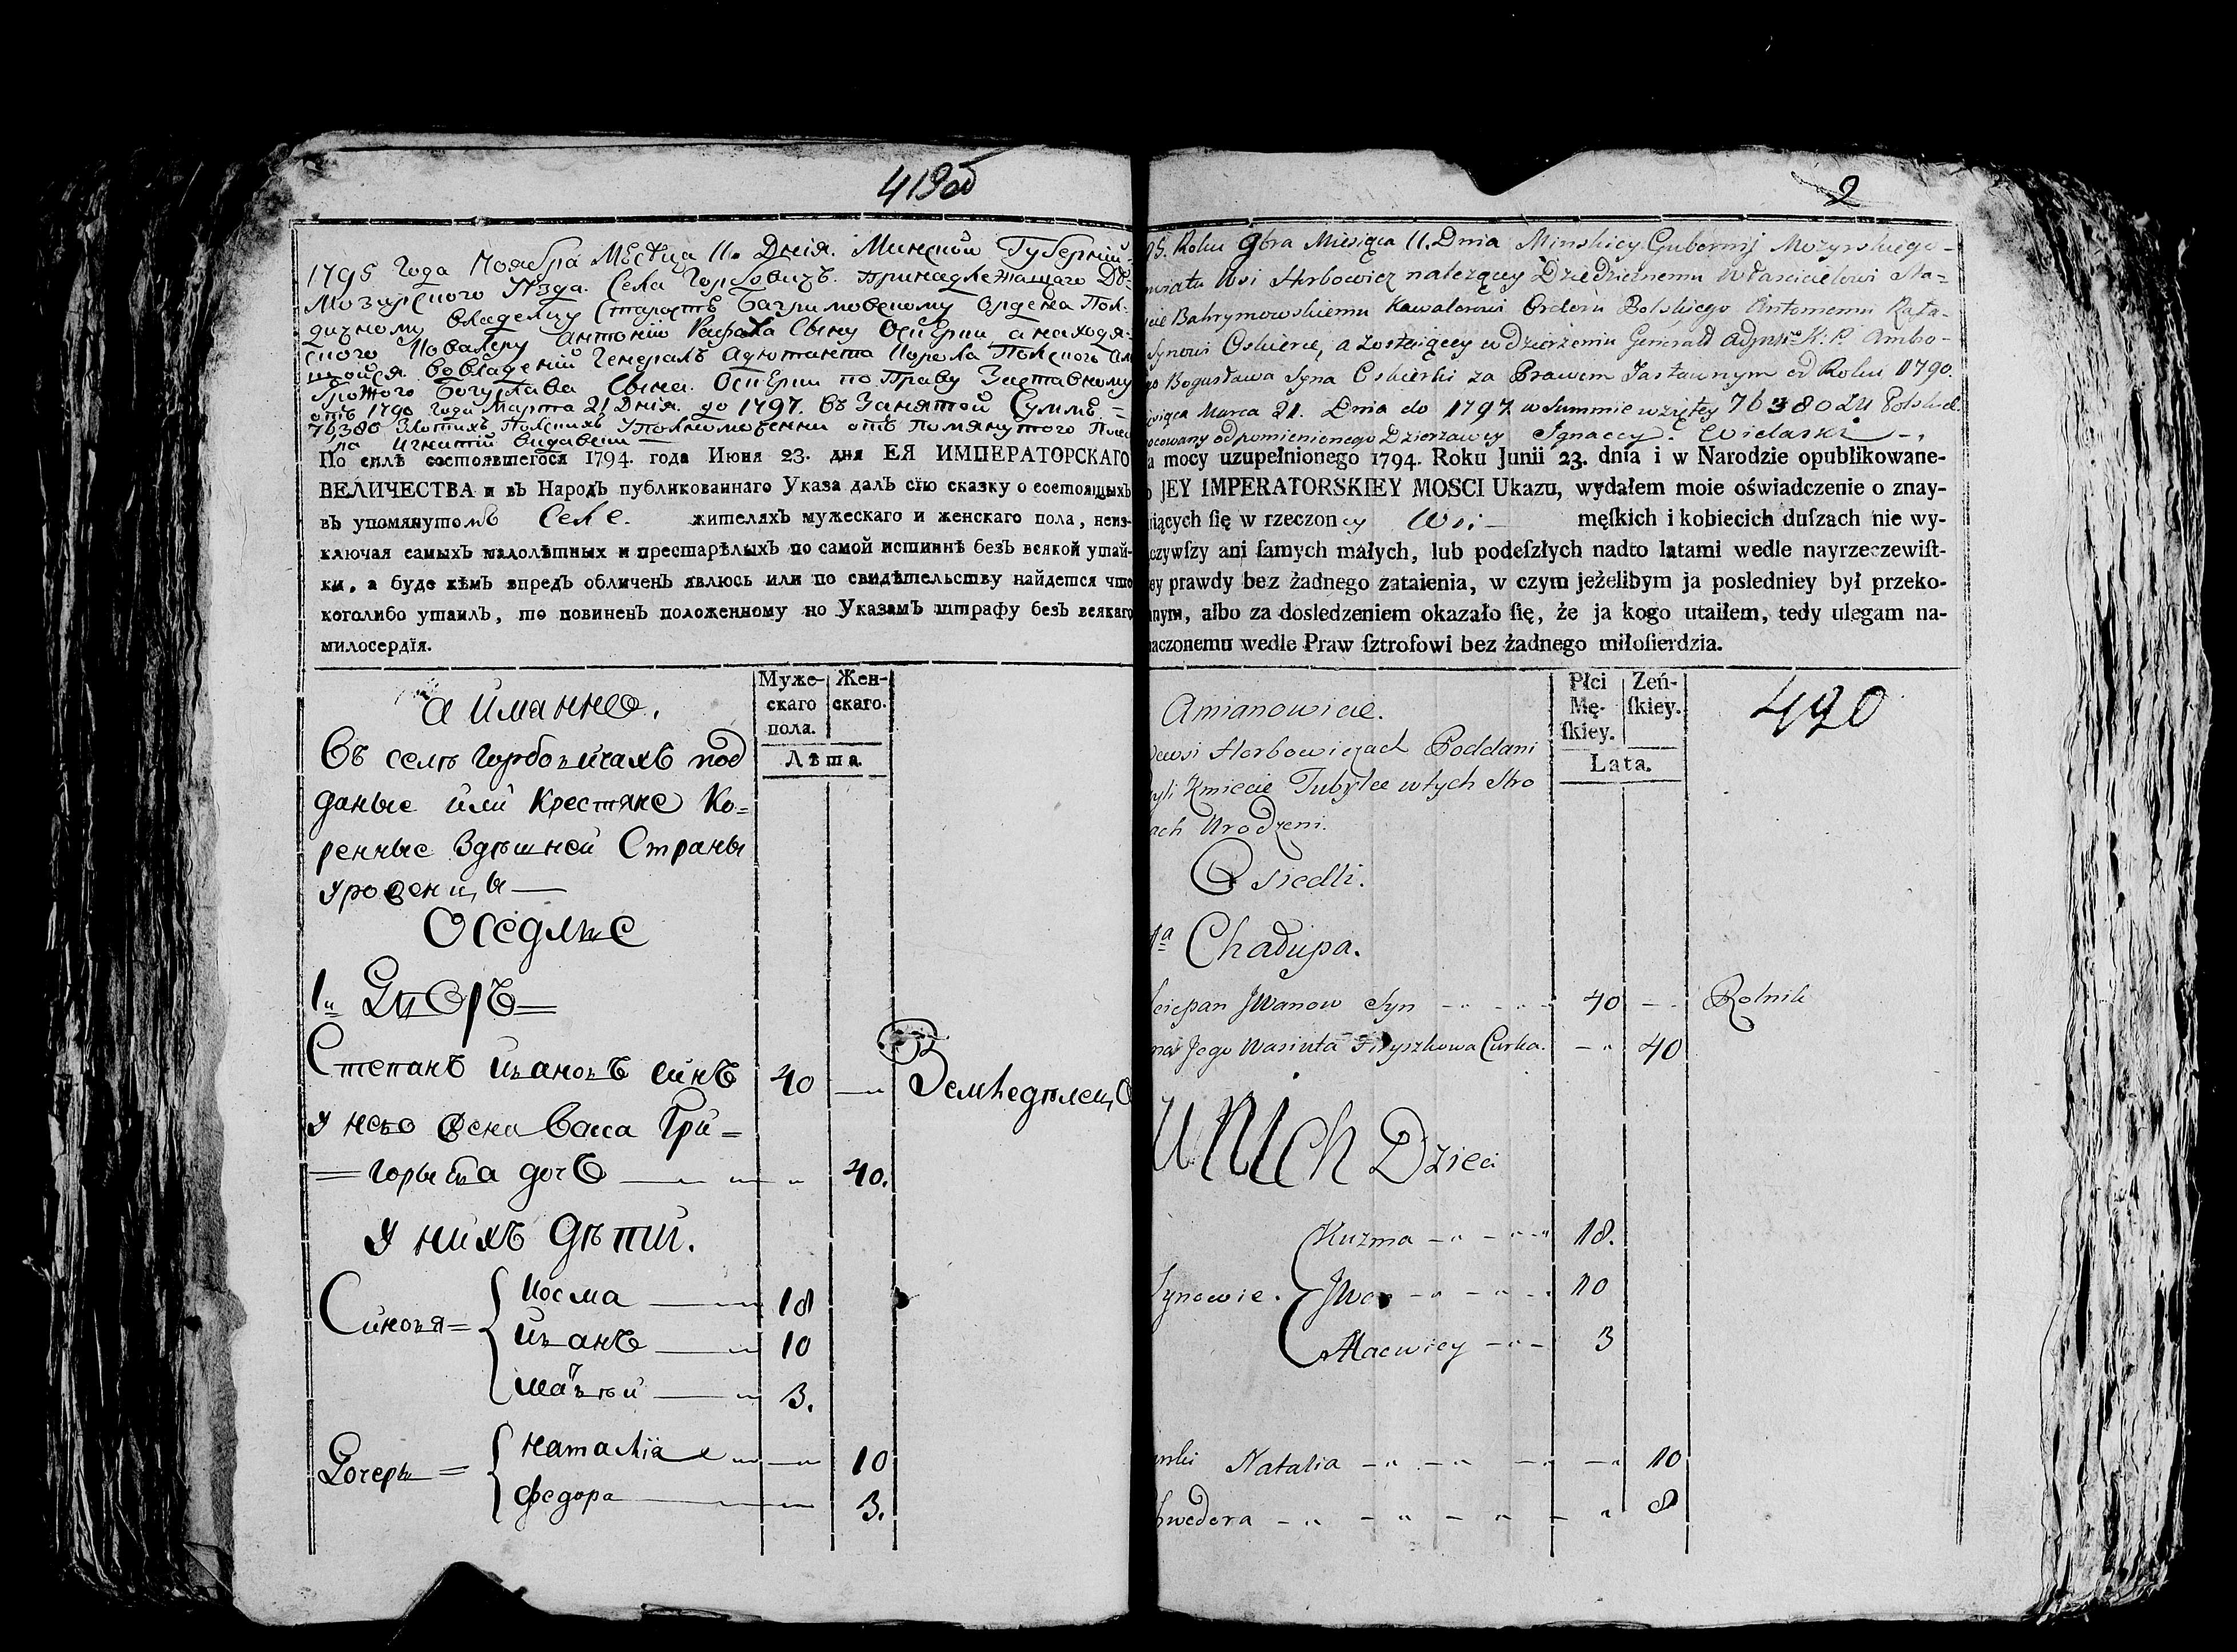 419 об
1795 Года Ноября Мѣсяца 11. Дніа. Минской Губерній
Мозырского Уѣзда. Села Горбовичъ. Принадлежащаго Дѣ-
дичному Владелцу Старостѣ Багримовскому Ордена Пол-
ского Кавалеру Антонію Рафала Сыну Оскѣрки, а находя-
щойся во владѣній Генералъ Адютанта Короля Полского Ам
Грожого Богуслава Сына. Оскѣрки по Праву Заставному
отъ 1790 Года Марта 21 Дніа. до 1797. Въ Занятой Суммѣ =
76380 Злотихъ Полскихъ Уполномоченни отъ Помянутого
Игнатій
По силѣ состоявшегося 1794. года Июня 23. дня ЕЯ ИМПЕРАТОРСКАГО
ВЕЛИЧЕСТВА и въ Народъ публикованнаго Указа далъ сїю сказку о состоящыхъ
въ упомянутомъ Селе. жителяхъ мужескаго и женскаго пола, неиз-
ключая самыхъ малолѣтныхъ и престарѣлыхъ по самой истиннѣ безъ всякой утай-
ки, а буде кѣмъ впредь обличенъ явлюсь или по свидѣтельству найдется что
коголибо утаилъ, то повиненъ положенному по Указамъ штрафу безъ всякаго
милосердїя.
а иманно.
Муже-
скаго
пола.
Жен-
скаго.
Лѣта.
Въ селѣ Горбовичахъ под
даные или крестяне Ко=
ренные Здѣшней Страны
уроженцы —
Оседлые
1й Дворъ =
Степанъ Ивановъ синъ 40 — Земледѣлецъ
у него жена Васса Гри=
= горьева дочъ — 40.
у нихъ дѣтий.
Синовя = Косма — 18
Иванъ — 10
Маѳѣй — 3.
Дочеры = Наталія — 10
Федора — 3.
2
95. Roku 9bra Miesiąca 11. Dnia Minskiey Gubernij Mozyrskiego -
Wsi Horbowicz należący Dziedzicznemu Właścicielowi Sta=
Bahrymowskiemu Kawalerowi Orderu Polskiego Antoniemu Rafa-
Synowi Oskierce, a zostaiącey w dzierżeniu Generał Adjut: K: P. Ambro-
Bogusława Syna Oskierki za Prawem Zastawnym od Roku 1790.
Marca 21. Dnia do 1797 w Summie wziętey 76380 Zł Polskich
od pomienionego Dzierżawcy Ignacy.
mocy uzupełnionego 1794. Roku Junii 23. dnia i w Narodzie opublikowane-
JEY IMPERATORSKIEY MOSCI Ukazu, wydałem moie oświadczenie o znay-
iących ſię w rzeczoney Wsi - męſkich i kobiecich duſzach nie wy-
czywſzy ani ſamych małych, lub podeſzłych nadto latami wedle nayrzeczewiſt-
ey prawdy bez żadnego zataienia, w czym jeżelibym ja posledniey był przeko-
nym, albo za dosledzeniem okazało ſię, że ja kogo utaiłem, tedy ulegam na-
aczonemu wedle Praw ſztrofowi bez żadnego miłoſierdzia.
Amianowicie.
Płci
Mę-
ſkiey.
Zeń-
ſkiey.
Lata.
420
wsi Horbowiczach Poddani
yli Kmiecie Tubylce w tych Stro
ach Urodzeni.
Osiedli.
1a Chałupa.
ciepan Jwanow Syn - 40 - Rolnik
Jego Wasiuta Hryszkowa Curka. - 40
U nich Dzieci
Kuzma - 18.
Synowie. Jwan - 10
Maewiey - 3
Natalia - 10
wedora - 8